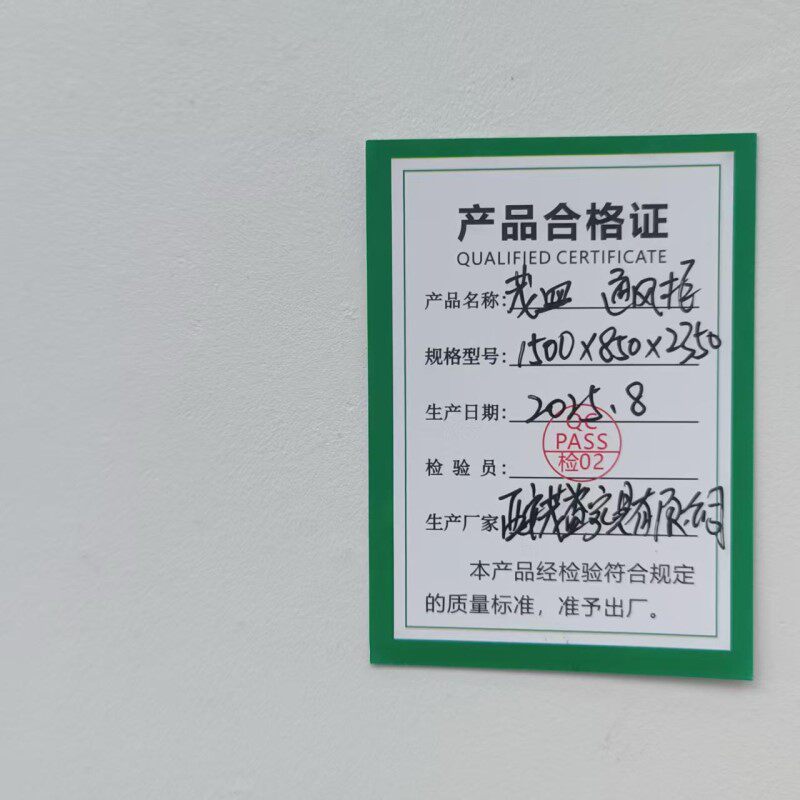 产品合格证
QUALIFIED CERTIFICATE
产品名称: 通风柜
规格型号: 1500×850×2350
生产日期: 2025.8
QC
PASS
检02
检 验 员:
生产厂家: 家具有限公司
本产品经检验符合规定
的质量标准，准予出厂。